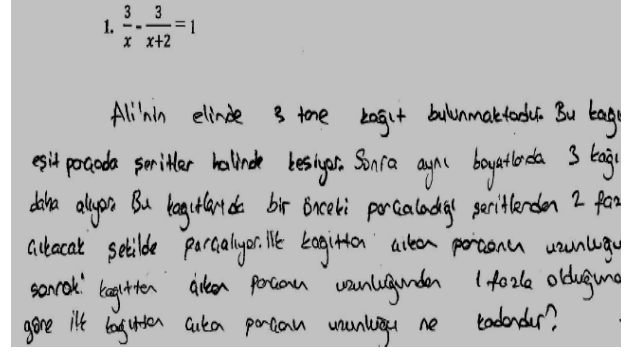 1. 3/x - 3/x+2 = 1
Ali'nin elinde 3 tane kağıt bulunmaktadır. Bu kağı
eşit parçada şeritler halinde kesiyor. Sonra aynı boyatlarda 3 kağı
daha alıyor. Bu kağıtlarıda bir önceki parçaladığı şeritlerden 2 faz
çıkacak şekilde parçalıyor. İlk kağıttan çıkan parçanın uzunluğu
sonraki kağıtten çıkan parçanın uzunluğundan 1 fazla olduğuna
göre ilk kağıttan çıkan parçanın uzunluğu ne kadardır?